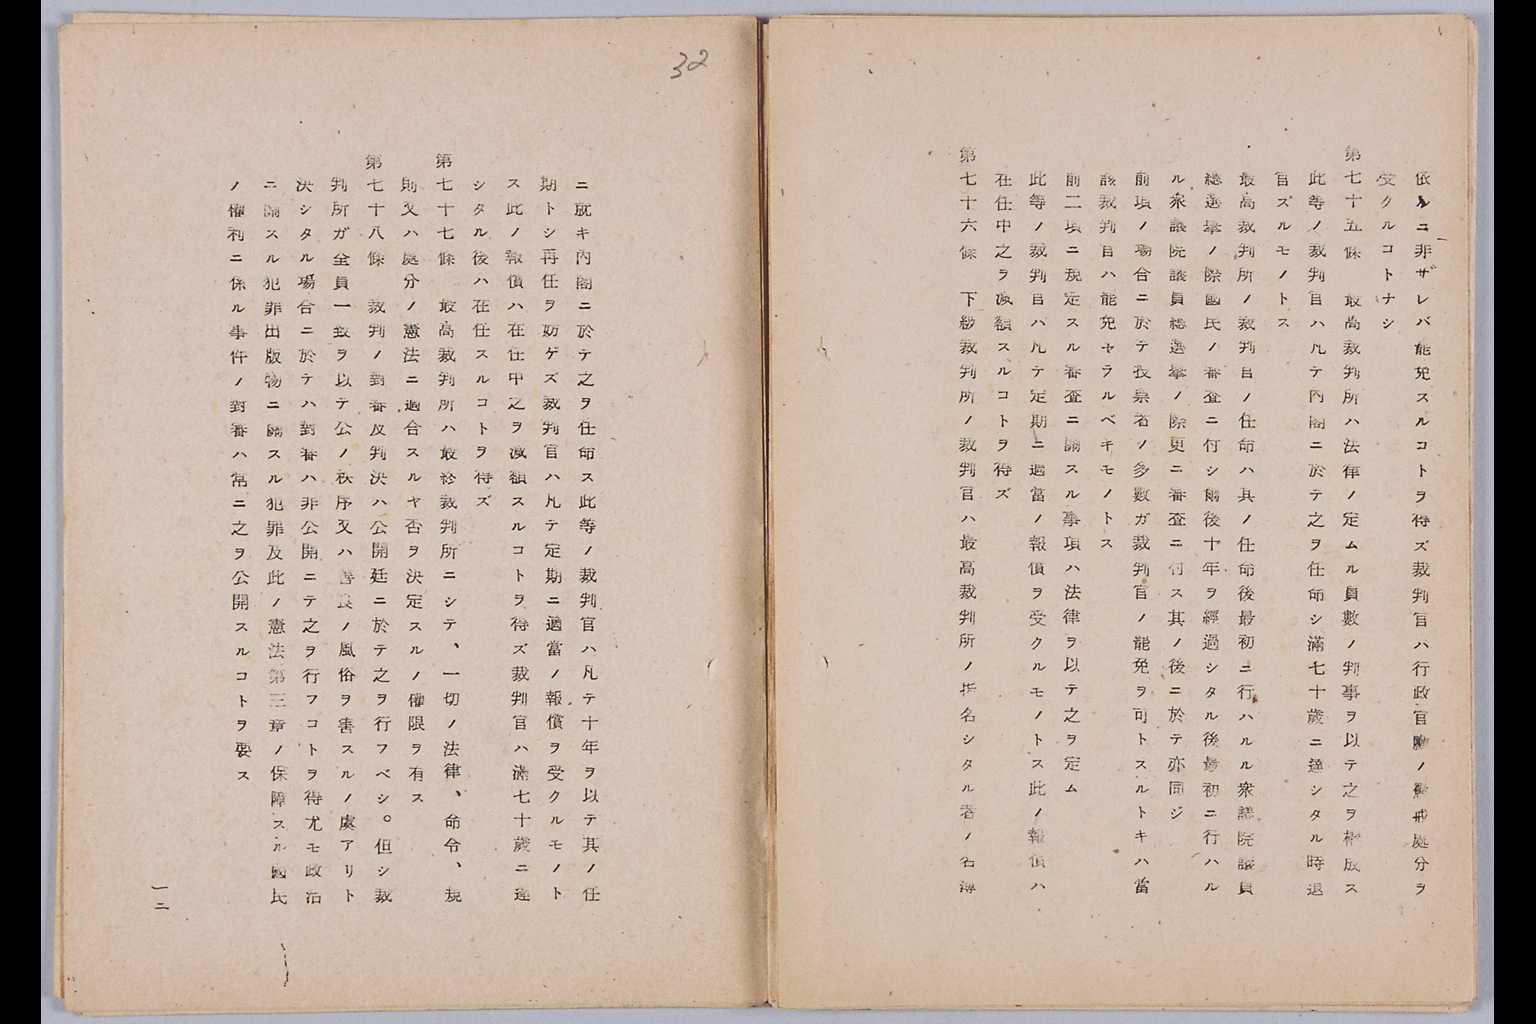 依ルニ非ザレバ罷免スルコトヲ得ズ裁判官ハ行政官廳ノ懲戒處分ヲ
受クルコトナシ
第七十五條 最高裁判所ハ法律ノ定ムル員數ノ判事ヲ以テ之ヲ構成ス
此等ノ裁判官ハ凡テ內閣ニ於テ之ヲ任命シ滿七十歲ニ達シタル時退
官スルモノトス
最高裁判所ノ裁判官ノ任命ハ其ノ任命後最初ニ行ハルル衆議院議員
總選擧ノ際國民ノ審査ニ付シ爾後十年ヲ經過シタル後最初ニ行ハル
ル衆議院議員總選擧ノ際更ニ審査ニ付ス其ノ後ニ於テ亦同ジ
前項ノ場合ニ於テ投票者ノ多數ガ裁判官ノ罷免ヲ可トスルトキハ當
該裁判官ハ罷免セラルベキモノトス
前二項ニ規定スル審査ニ關スル事項ハ法律ヲ以テ之ヲ定ム
此等ノ裁判官ハ凡テ定期ニ適當ノ報償ヲ受クルモノトス此ノ報償ハ
在任中之ヲ減額スルコトヲ得ズ
第七十六條 下級裁判所ノ裁判官ハ最高裁判所ノ指名シタル者ノ名簿
32
ニ就キ內閣ニ於テ之ヲ任命ス此等ノ裁判官ハ凡テ十年ヲ以テ其ノ任
期トシ再任ヲ妨ゲズ裁判官ハ凡テ定期ニ適當ノ報償ヲ受クルモノト
ス此ノ報償ハ在任中之ヲ減額スルコトヲ得ズ裁判官ハ滿七十歲ニ達
シタル後ハ在任スルコトヲ得ズ
第七十七條 最高裁判所ハ最終裁判所ニシテ、一切ノ法律、命令、規
則又ハ處分ノ憲法ニ適合スルヤ否ヲ決定スルノ權限ヲ有ス
第七十八條 裁判ノ對審及判決ハ公開廷ニ於テ之ヲ行フベシ。但シ裁
判所ガ全員一致ヲ以テ公ノ秩序又ハ善良ノ風俗ヲ害スルノ虞アリト
決シタル場合ニ於テハ對審ハ非公開ニテ之ヲ行フコトヲ得尤モ政治
ニ關スル犯罪出版物ニ關スル犯罪及此ノ憲法第三章ノ保障スル國民
ノ權利ニ係ル事件ノ對審ハ常ニ之ヲ公開スルコトヲ要ス
一二